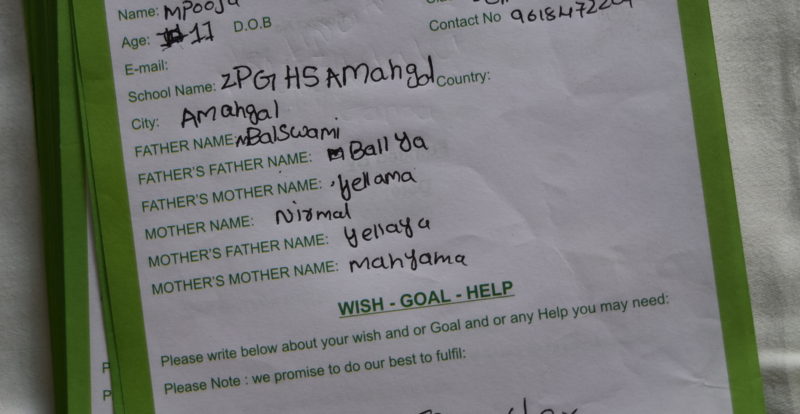 Name: MPooja
Age: 11 D.O.B Contact No
E-mail:
School Name: ZPGHS AMangal Country:
City: AMangal
FATHER NAME: MBalswami
FATHER'S FATHER NAME: M Ballya
FATHER'S MOTHER NAME: Yellama
MOTHER NAME: Nirmal
MOTHER'S FATHER NAME: Yellaya
MOTHER'S MOTHER NAME: Manyama
WISH - GOAL - HELP
Please write below about your wish and or Goal and or any Help you may need:
Please Note : we promise to do our best to fulfil: